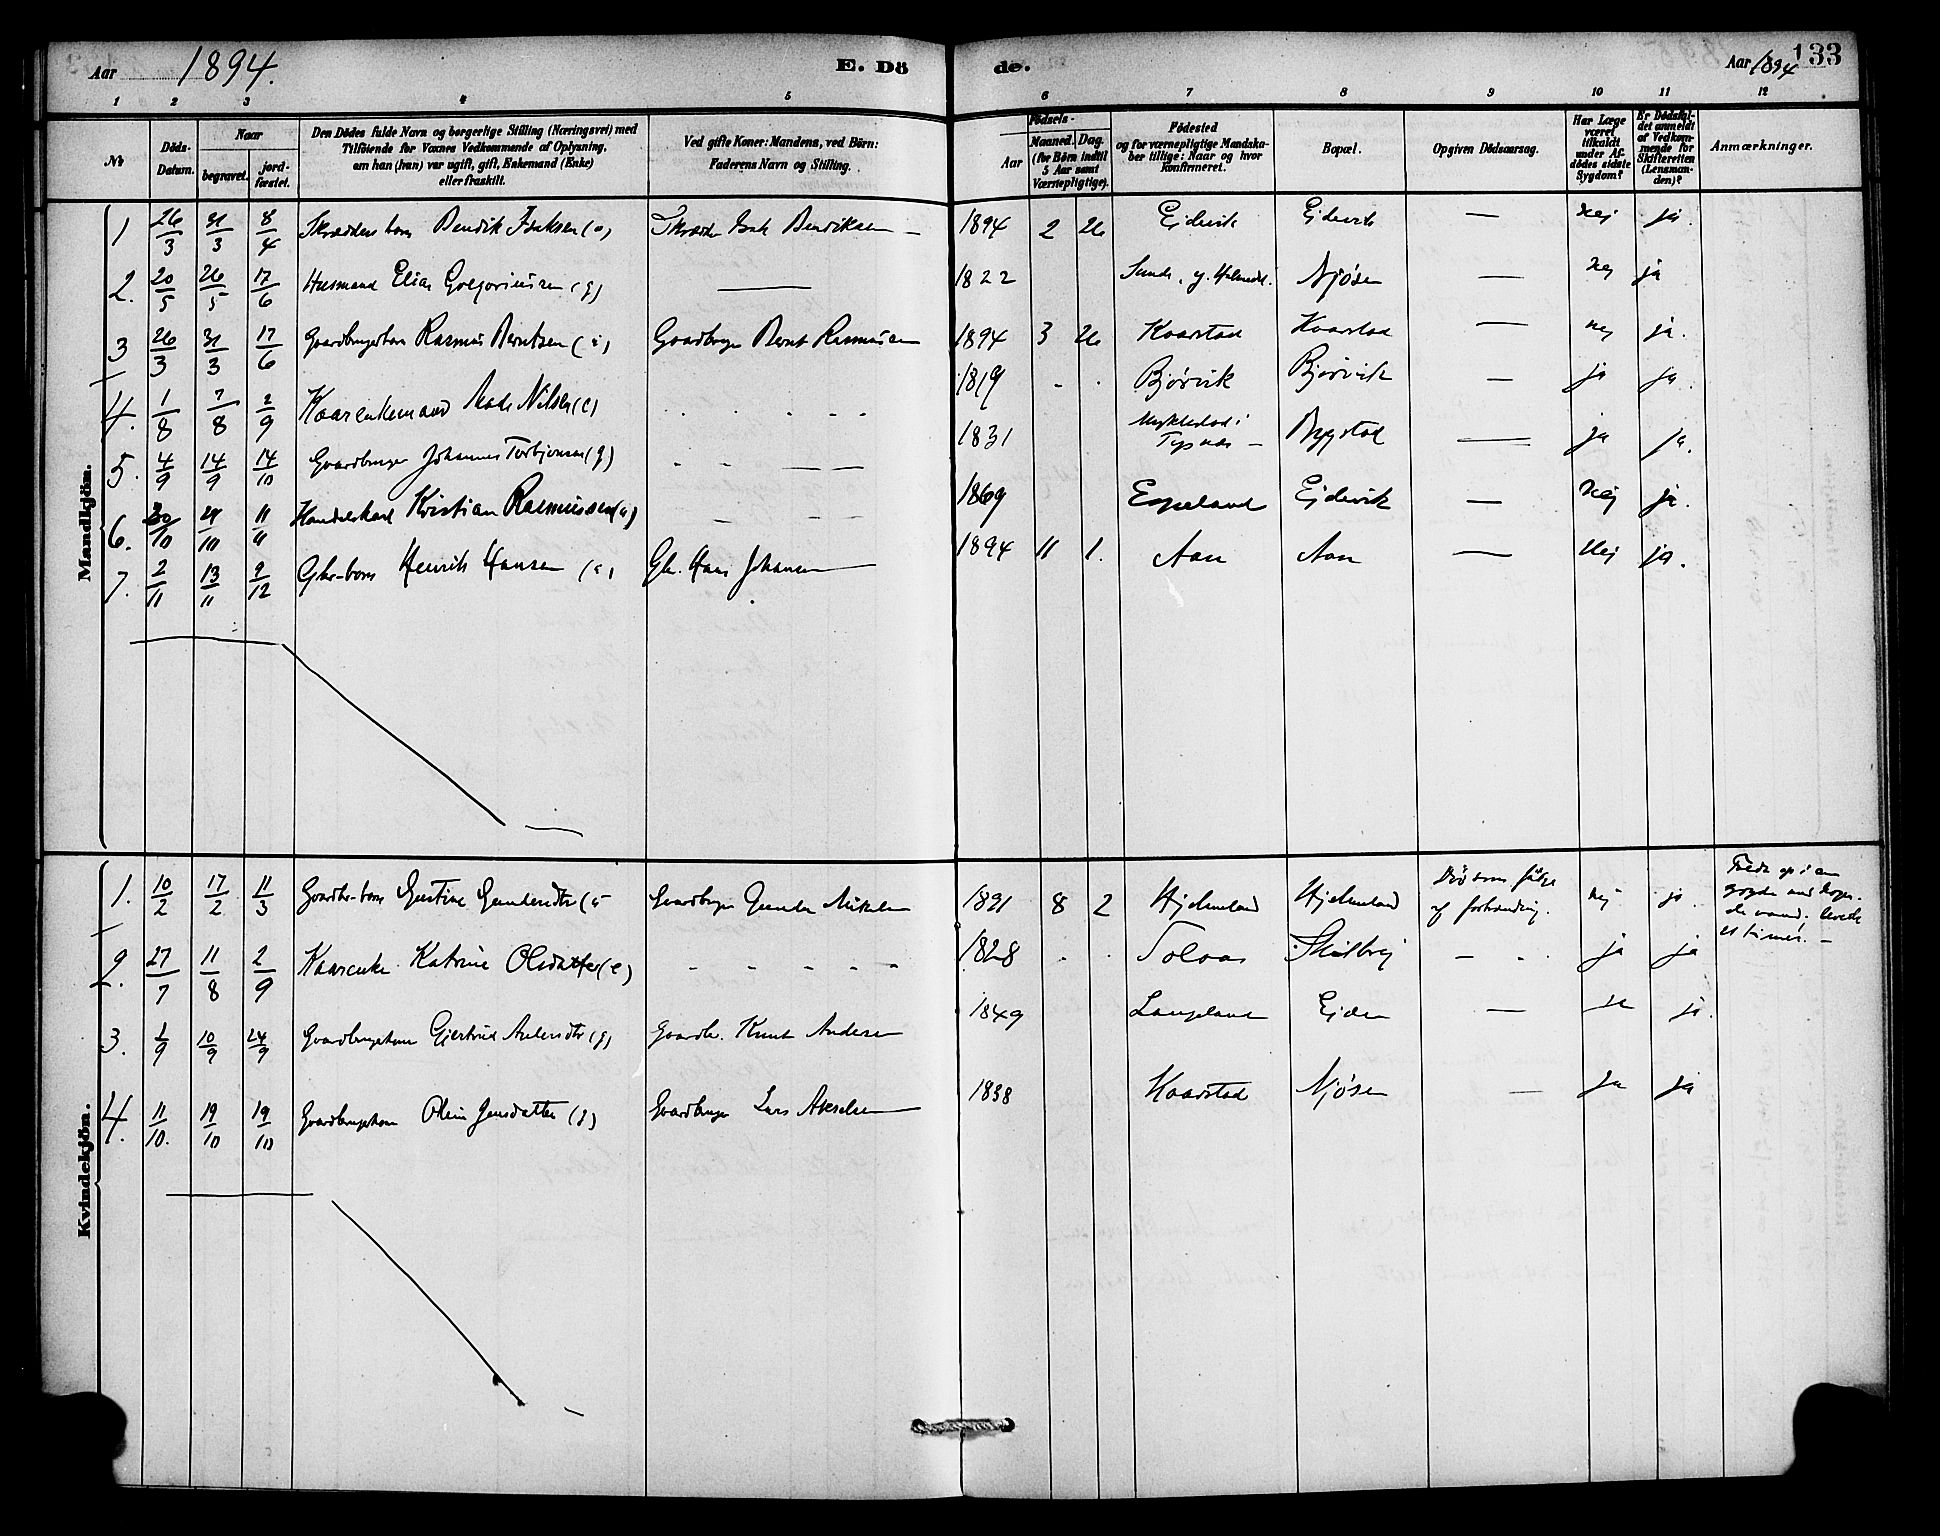 Aar 1894. E. Dö de. Aar 1894 133
1 2 3 4 5 6 7 8 9 10 11 12
№
Döds-Datum.
Naar
begravet.
jord-fæstet.
Den Dödes fulde Navn og borgerlige Stilling (Næringsvei) med
Tilföiende for Voxnes Vedkommende af Oplysning,
om han (hun) var ugift, gift, Enkemand (Enke)
eller fraskilt.
Ved gifte Koner: Mandens, ved Börn:
Faderens Navn og Stilling.
Födsels-
Aar
Maaned. Dag.
(for Börn indtil
5 Aar samt
Værnepligtige).
Födested
og for værnepligtige Mandska-
ber tillige: Naar og hvor
konfirmeret.
Bopæl.
Opgiven Dödsaarsag.
Har Læge
været
tilkaldt
under Af-
dödes sidste
Sygdom?
Er Dödsfal-
det anmeldt
af Vedkom-
mende for
Skifteretten
(Lensman-
den)?
Anmærkninger.
Mandkjön.
1 26/3 31/3 8/4 Skrædders barn Bendik Isaksen (u) Skrædder Isak Bendiksen — 1894 2 26 Eidevik Eidevik — Nej ja.
2. 20/5 26/5 17/6 Husmand Elias Gregoriussen (g) — 1822 Sande, Njøsen — Nej ja
3 26/3 31/3 17/6 Gaardbrugerbarn Rasmus Berntsen (u) Gaardbruger Bernt Rasmussen 1894 3 26 Kaarstad Kaarstad — nej ja.
4. 1/8 7/8 2/9 Kaarenkemand Mads Nilsen (e) 1819 Bjørvik Bjørvik — ja ja.
5. 4/9 14/9 14/10 Gaardbruger Johannes Torbjørnsen (g) 1831 Myklestad i — Bygstad — ja ja.
6. 20/10 29/10 11/11 Handelskarl Kristian Rasmussen (u) 1869 Espeland Eidevik — Nej ja.
7. 2/11 13/11 2/12 Gbr-barn Henrik Hansen (u) Gbr. Hans Johansen 1894 11 1. Aan Aan — Nej ja.
Kvindekjön.
1. 10/2 17/2 11/3 Gaardbr-barn Gjertine Gundersdtr (u Gaardbruger Gunder Mikkelsen 1891 8 2 Hjelmeland Hjelmeland Død som følge
af forbrænding. nej ja. Faldt op i en
gryde med kogen-
de vand. levede
11 timer. —
2. 27/7 11/8 2/9 Kaarenke Katrine Olsdatter (e) 1828 Solvas Skilbrej — ja ja
3. 1/9 10/9 24/9 Gaardbrugerkone Gjertrud Andersdtr (g) Gaardbr. Knut Andersen 1849 Langeland Eiden — ja ja.
4. 11/10. 19/10 19/10 Gaardbrugerkone Oline Jensdatter (g) Gaardbruger Lars Akselsen 1838 Kaarstad Njøsen — ja ja